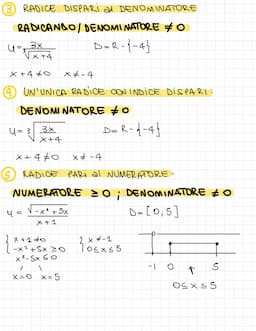 ③ RADICE DISPARI al DENOMINATORE
RADICANDO/DENOMINATORE ≠ 0
y = 3x / √x+4    D = R - {-4}
x+4 ≠ 0    x ≠ -4
④ UN'UNICA RADICE CON INDICE DISPARI
DENOMINATORE ≠ 0
y = ³√ 3x / x+4    D = R - {-4}
x+4 ≠ 0    x ≠ -4
⑤ RADICE PARI al NUMERATORE
NUMERATORE ≥ 0 ; DENOMINATORE ≠ 0
y = √-x²+5x / x+1    D = [0,5]
{ x+1 ≠ 0    { x ≠ -1
{ -x²+5x ≥ 0    { 0 ≤ x ≤ 5
x²-5x ≤ 0
x=0    x=5
-1    0    5
0 ≤ x ≤ 5